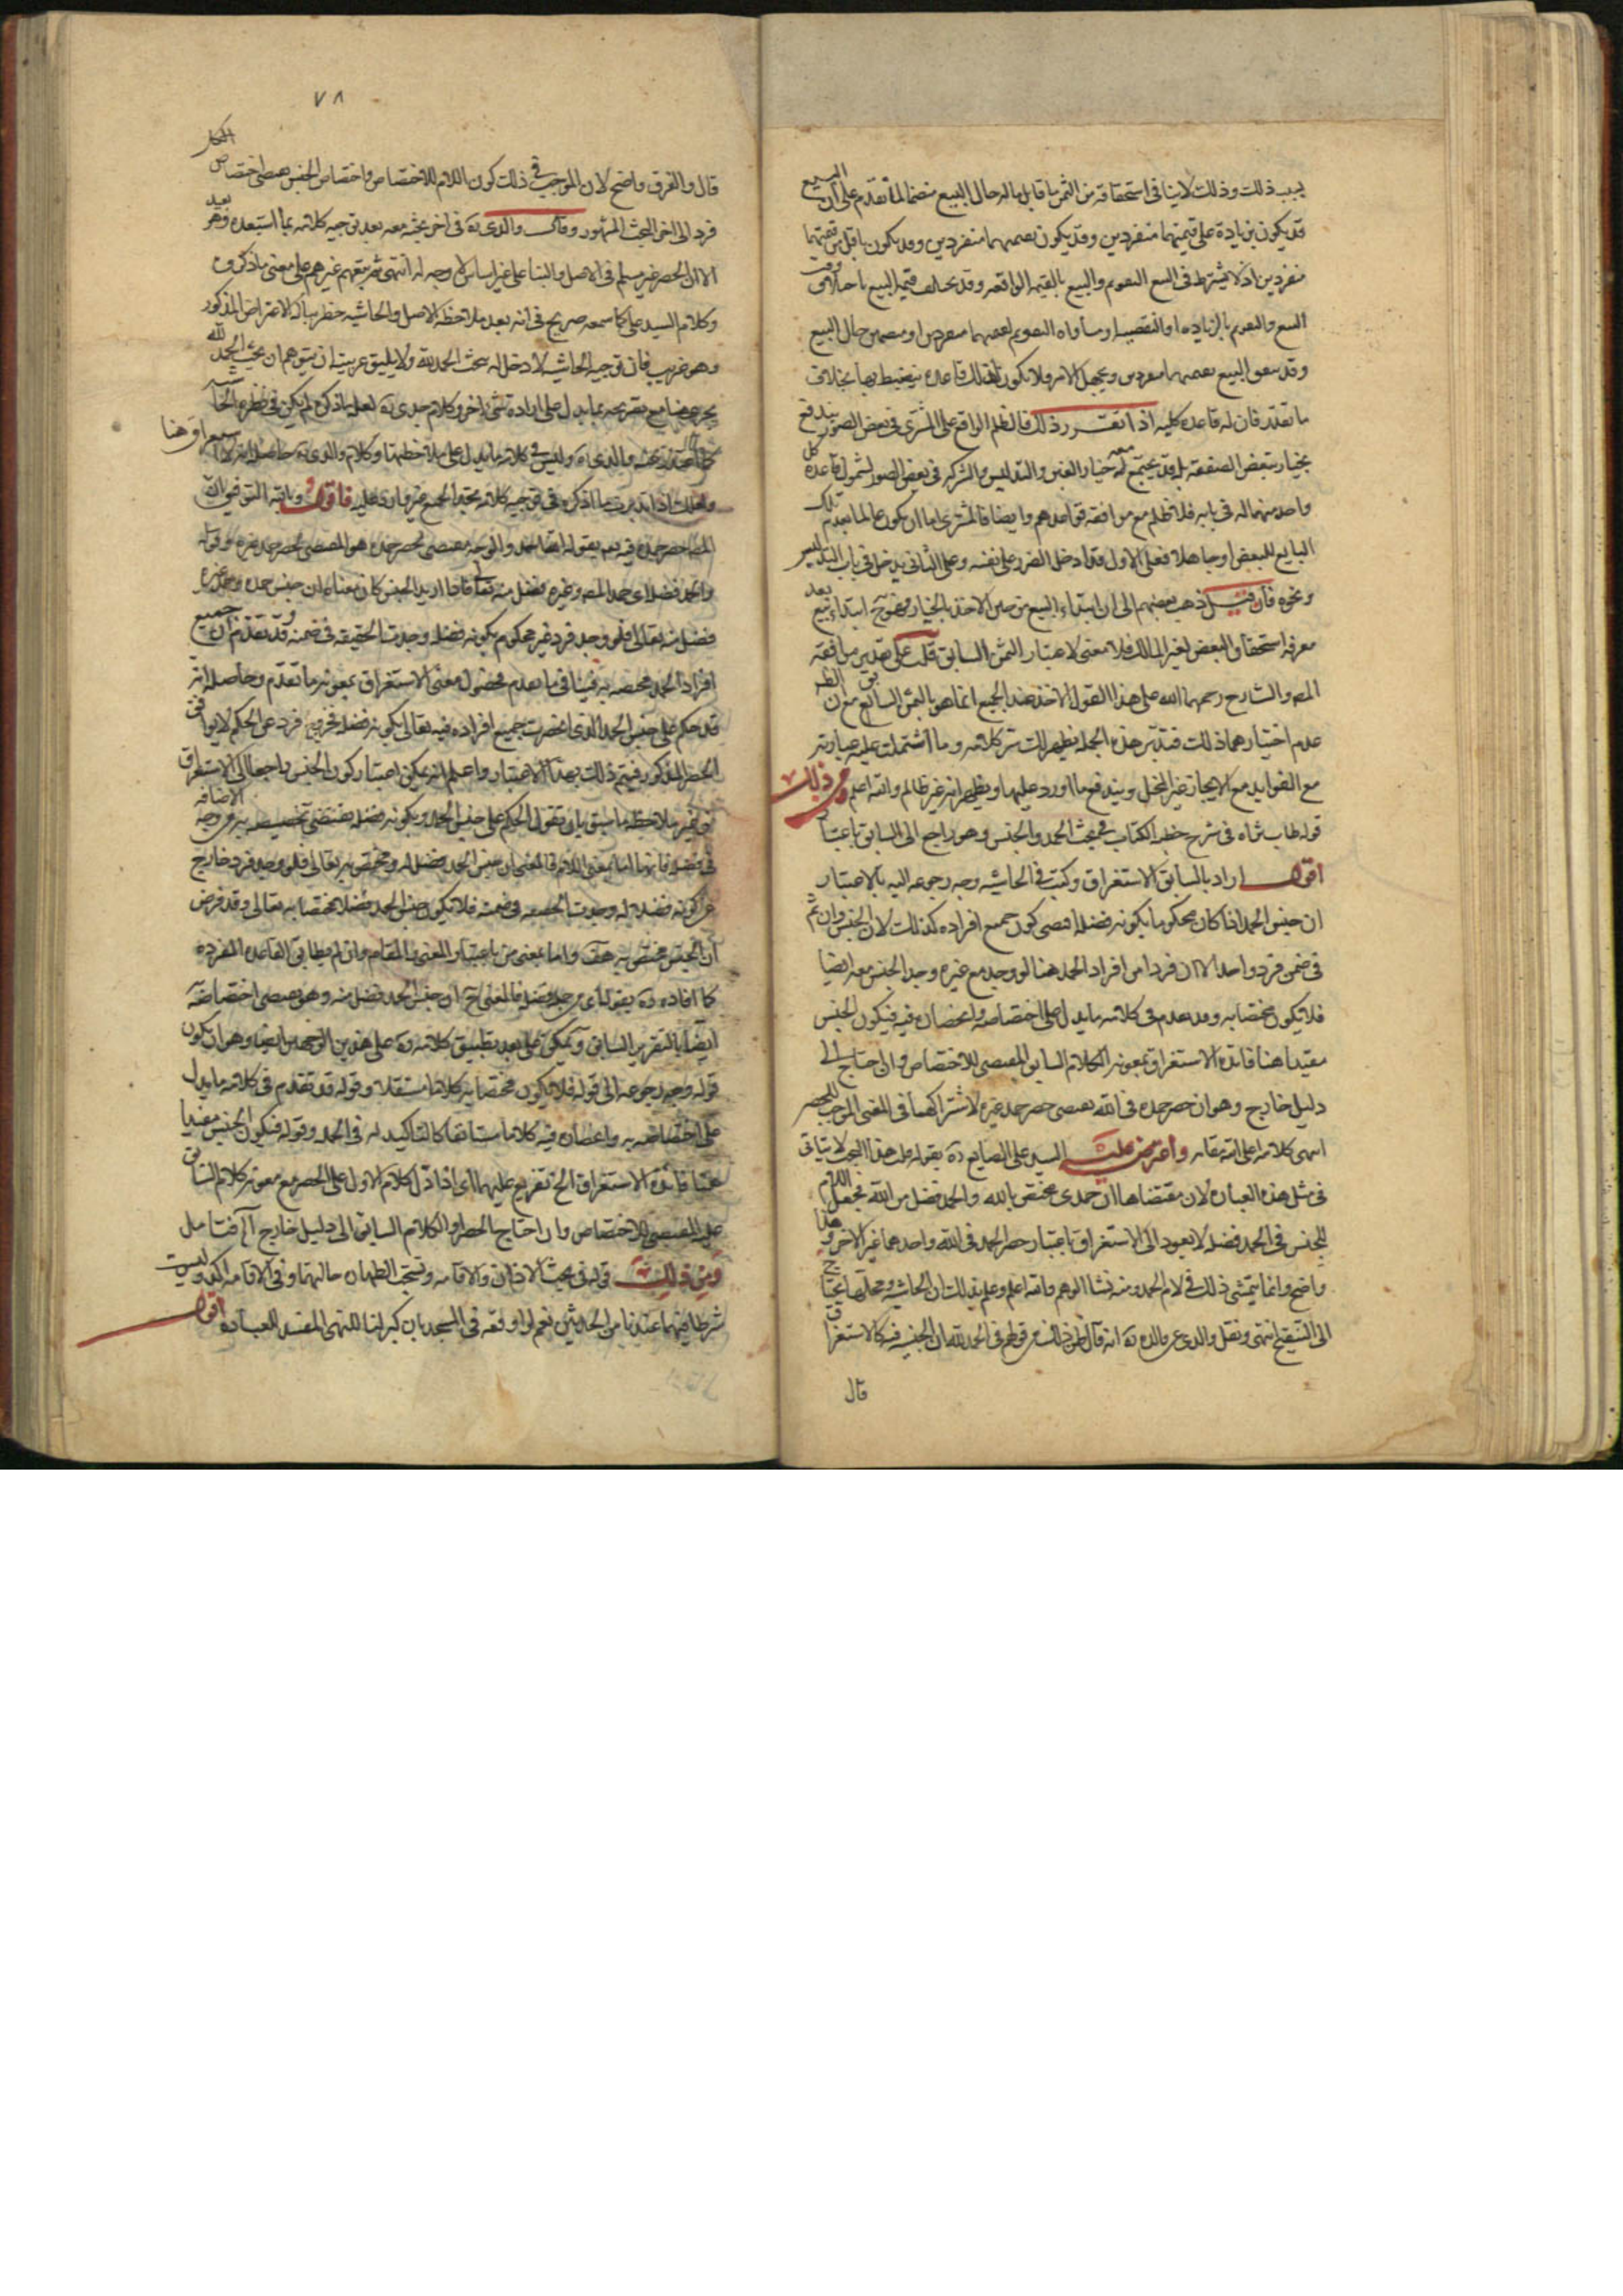 يجب ذلك وذلك لا ينافي استحقاقه من الثمن ما قابل ماله حال البيع منضما لما تقدم على ان المبيع
قد يكون بزيادة على قيمتهما منفردين وقد يكون بقيمتهما منفردين وقد يكون باقل من قيمتهما
منفردين اذ لا يشترط في البيع التقويم والبيع بالقيمة الواقعة وقد يخالف قيمة المبيع باختلاف وقت
البيع والتقويم بالزيادة او النقصية او مساواة التقويم لقيمتهما منفردين او منضمين حال البيع
وقد يتفق البيع بقيمتهما منفردين ويجهل الامر فلا يكون لذلك قاعدة ينضبط بها بخلاف
ما تقدر فان له قاعدة كلية اذا تقرر ذلك فالظلم الواقع على المشتري في بعض الصور يندفع
بخيار تبعض الصفقة بل قد يجتمع معه خيار الغبن والتدليس والشركة في بعض الصور لشمول قاعدة كل
واحد منها له في بابه فلا ظلم مع موافقة قواعدهم وايضا فالمشتري اما ان يكون عالما بعدم تملك
البايع للبعض او جاهلا فعلى الاول قد ادخل الضرر على نفسه وعلى الثاني يدخل في باب التدليس
ونحوه فان قيل ذهب بعضهم الى ان ابتداء البيع من حين الاخذ بالخيار فهو ح ابتداء بيع بعد
معرفة استحقاق البعض لغير المالك فلا معنى لاعتبار الثمن السابق قلت على تقدير موافقة
المص والشارح رحمهما الله على هذا القول الاخذ عند الجميع انما هو بالثمن السابق مع ان الظ
عدم اختيارهما ذلك فتدبر هذه الجملة يظهر لك سر كلامه وما اشتملت عليه عبارته
مع الفوايد مع الايجاز غير المخل ويندفع ما اورد عليها ويظهر انه غير ظالم والله اعلم ومن ذلك
قوله طاب ثراه في شرح خطبة الكتاب في مبحث الحمد والجنس وهو راجع الى السابق باعتبار
اقول اراد بالسابق الاستغراق وكتب في الحاشية وجه رجوعه اليه بالاعتبار
ان جنس الحمد اذا كان محكوما بكونه فضله اقتضى كون جميع افراده كذلك لان الجنس وان تم
في ضمن فرد واحد الا ان فردا من افراد الحمد هنا لو وجد مع غيره وجد الجنس معه ايضا
فلا يكون مختصا به وقد تقدم في كلامه ما يدل على اختصاصه وانحصاره فيه فيكون الجنس
مفيدا هنا فائدة الاستغراق بمعونة الكلام السابق المقتضي للاختصاص وان احتاج الى
دليل خارج وهو ان حصر حمده في الله يقتضي حصر حمد غيره لاشتراكهما في المعنى الموجب للحصر
انتهى كلامه اعلى الله مقامه واعترض عليه السيد علي الصايغ ره بقوله قلت هذا البحث لا يتاتى
في مثل هذه العبارة لان مقتضاها ان حمدي مختص بالله والحمد فضل من الله فجعل اللام
للجنس في الحمد فضله لا يعود الى الاستغراق باعتبار حصر الحمد في الله واحدهما غير الاخر وهذا
واضح وانما يتمشى ذلك في لام الحمد ومنه نشا الوهم والله اعلم وعلم بذلك ان الحاشية ومحلها يحتاج
الى التنقيح انتهى ونقل والدي عن والده ره انه قال ظن ذلك من قولهم في الحمد لله ان الجنس فيه كالاستغراق
قال
٧٨
قال والفرق واضح لان الموجب في ذلك كون اللام للاختصاص واختصاص الجنس يقتضي اختصاص
فرد الى اخر البحث المشهور وقال والدي ره في اخر بحثه معه بعد توجيه كلامه بما استبعده وهو بعيد
الا ان الحصر غير مسلم في الاصل والبناء على غير اساس لا وجه له انتهى ثم تبعهم غيرهم على معنى ما ذكروه
وكلام السيد علي كما سمعه صريح في انه بعد ملاحظة الاصل والحاشية خطر بباله الاعتراض المذكور
وهو غريب فان توجيه الحاشية لا دخل له ببحث الحمد لله ولا يليق بمرتبته ان يتوهم ان بحث الحمد لله
يجري هنا مع تصريحه بما يدل على ارادة شيء اخر وكلام جدي ره لعله باذكر لم يكن في نظره الحاشية
والدي ره وليس في كلامه ما يدل على ملاحظتها وكلام والدي ره
ولعلك اذا تدبرت ما اذكره في توجيه كلامه تجد الجميع غير وارد عليه فاقول وبالله التوفيق
فضل منه تعالى فلو وجد فرد غير محكوم بكونه فضله وجدت الحقيقة في ضمنه وقد تقدم ان جميع
افراد الحمد مختصة به فينافي ما تقدم فحصول معنى الاستغراق بمعونة ما تقدم وحاصله انه
قد حكم على جنس الحمد الذي انحصرت جميع افراده فيه تعالى بكونه فضله فخروج فرد عن الحكم لا يوافق
الحصر المذكور فيتم ذلك بهذا الاعتبار واعلم انه يمكن اعتبار كون الجنس راجعا الى الاستغراق
من غير ملاحظة ما سبق بان نقول الحكم على جنس الحمد بكونه فضله يقتضي تخصيصه به من وجه الاضافة
في فضله فانها اما بمعنى اللام فالمعنى ان جنس الحمد فضل له ومختص به تعالى فلو وجد فرد خارج
عن كونه فضلا له وجدت الحقيقة في ضمنه فلا يكون جنس الحمد فضلا مختصا به تعالى وقد فرض
ان الجنس مختص به هف واما بمعنى من باعتبار المعنى والمقام وان لم يطابق القاعدة المقررة
كما افاده ره بقوله اي من جملة فضله فالمعنى ح ان جنس الحمد فضل منه وهو يقتضي اختصاصه
ايضا بالتقرير السابق ويمكن على بعد تطبيق كلامه ره على هذين الوجهين ايضا وهو ان يكون
قوله وجه رجوعه الى قوله فلا يكون مختصا به كلاما مستقلا وقوله قد تقدم في كلامه ما يدل
على اختصاصه به وانحصاره فيه كلاما مستانفا كالتاكيد له في الحمد وقوله فيكون الجنس مفيدا
هنا فائدة الاستغراق الخ تفريع عليهما اي اذا دل الكلام الاول على الحصر مع معونة كلام السابق
المقتضي للاختصاص وان احتاج الحصر او الكلام السابق الى دليل خارج آه فتامل
ومن ذلك قوله في بحث الاذان والاقامة وتستحب الطهارة حالتهما وفي الاقامة اكد وليست
شرطا فيهما عندنا من الحدثين نعم لو اوقعه في المسجد بان كبر لغا للنهي المفسد للعبادة اقول